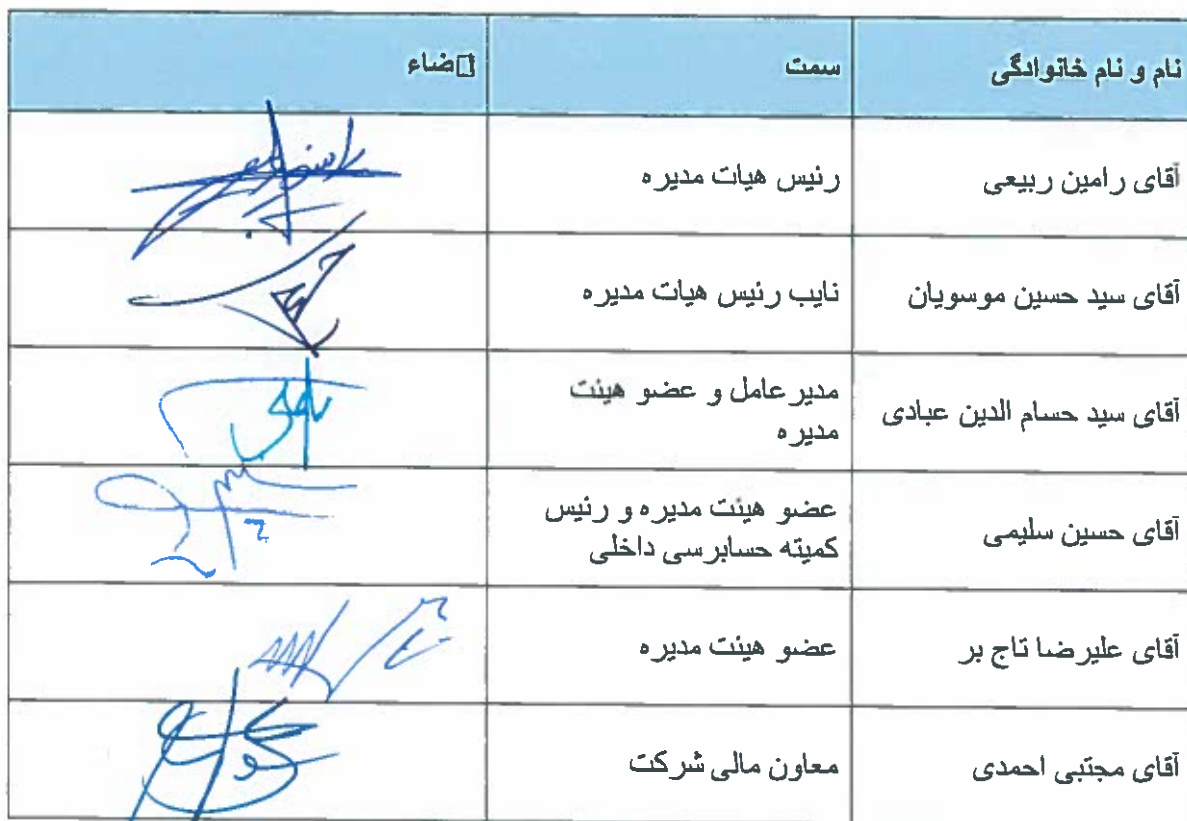 نام و نام خانوادگی سمت ضاء
آقای رامین ربیعی رئیس هیات مدیره
آقای سید حسین موسویان نایب رئیس هیات مدیره
آقای سید حسام الدین عبادی مدیرعامل و عضو هیئت
مدیره
آقای حسین سلیمی عضو هیئت مدیره و رئیس
کمیته حسابرسی داخلی
آقای علیرضا تاج بر عضو هیئت مدیره
آقای مجتبی احمدی معاون مالی شرکت